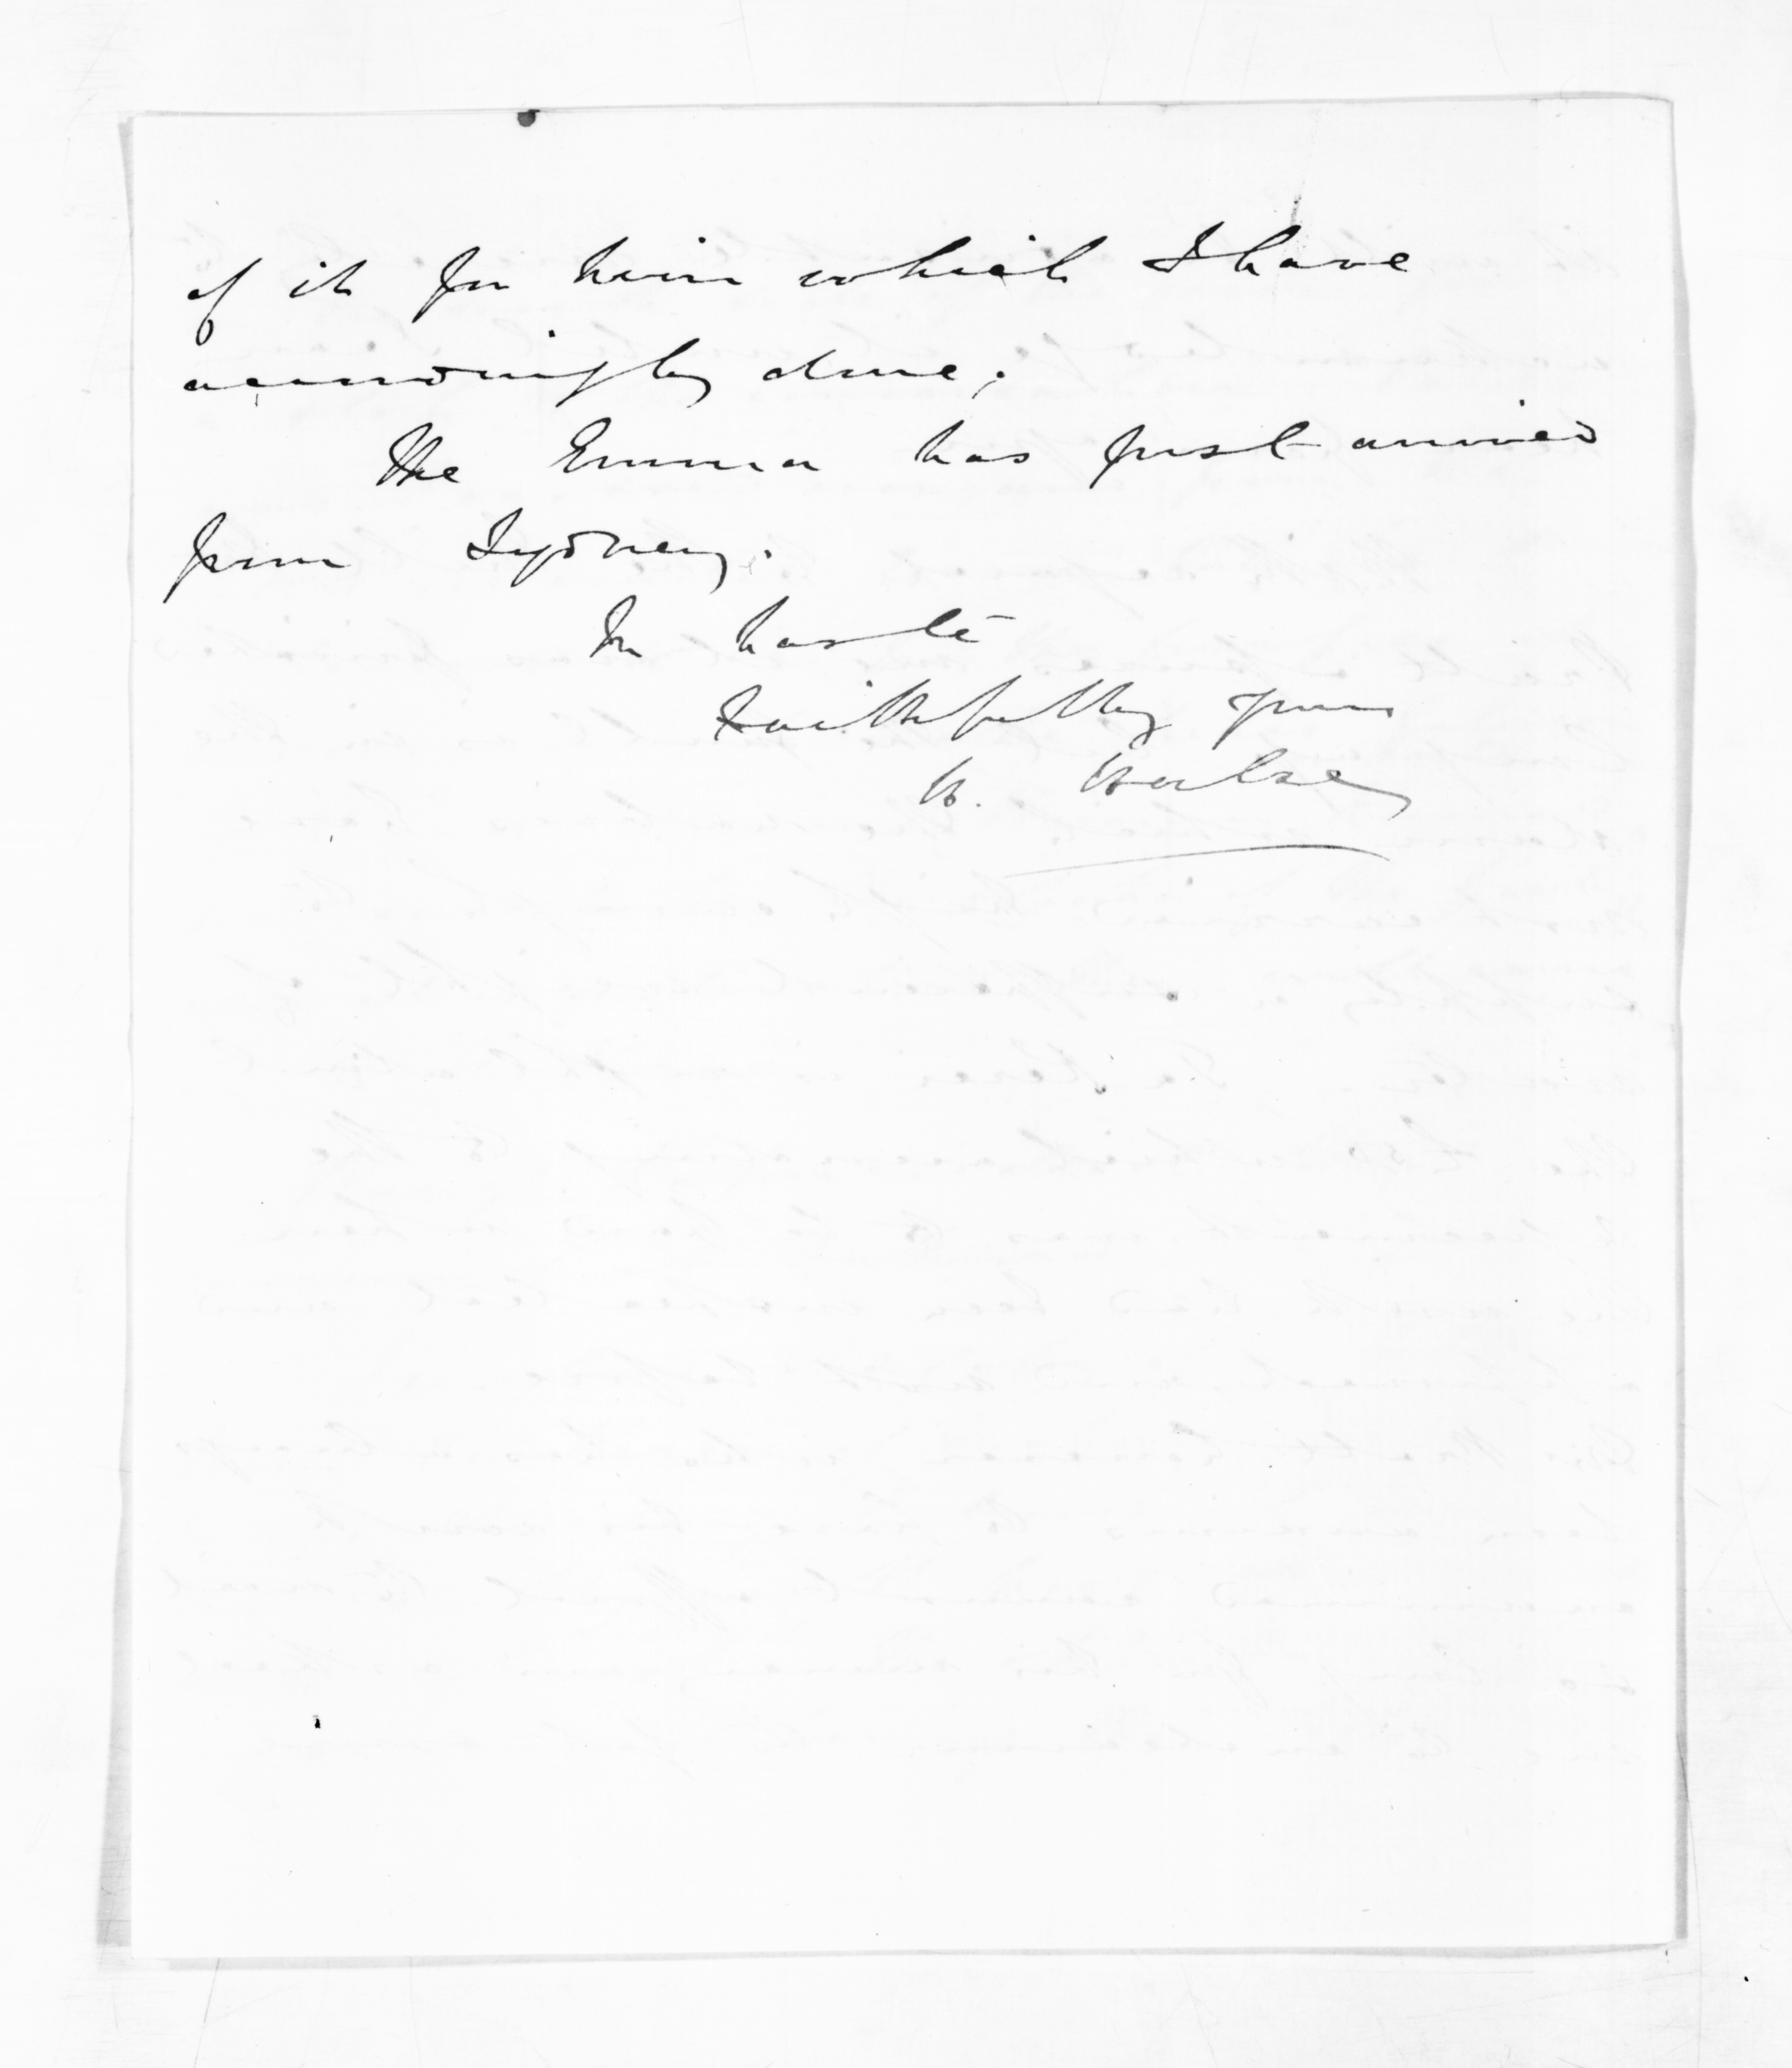 of it for him which I have
accordingly done;
The Emma has just arrived
from Sydney.
In haste
Faithfully yours
H. Halse